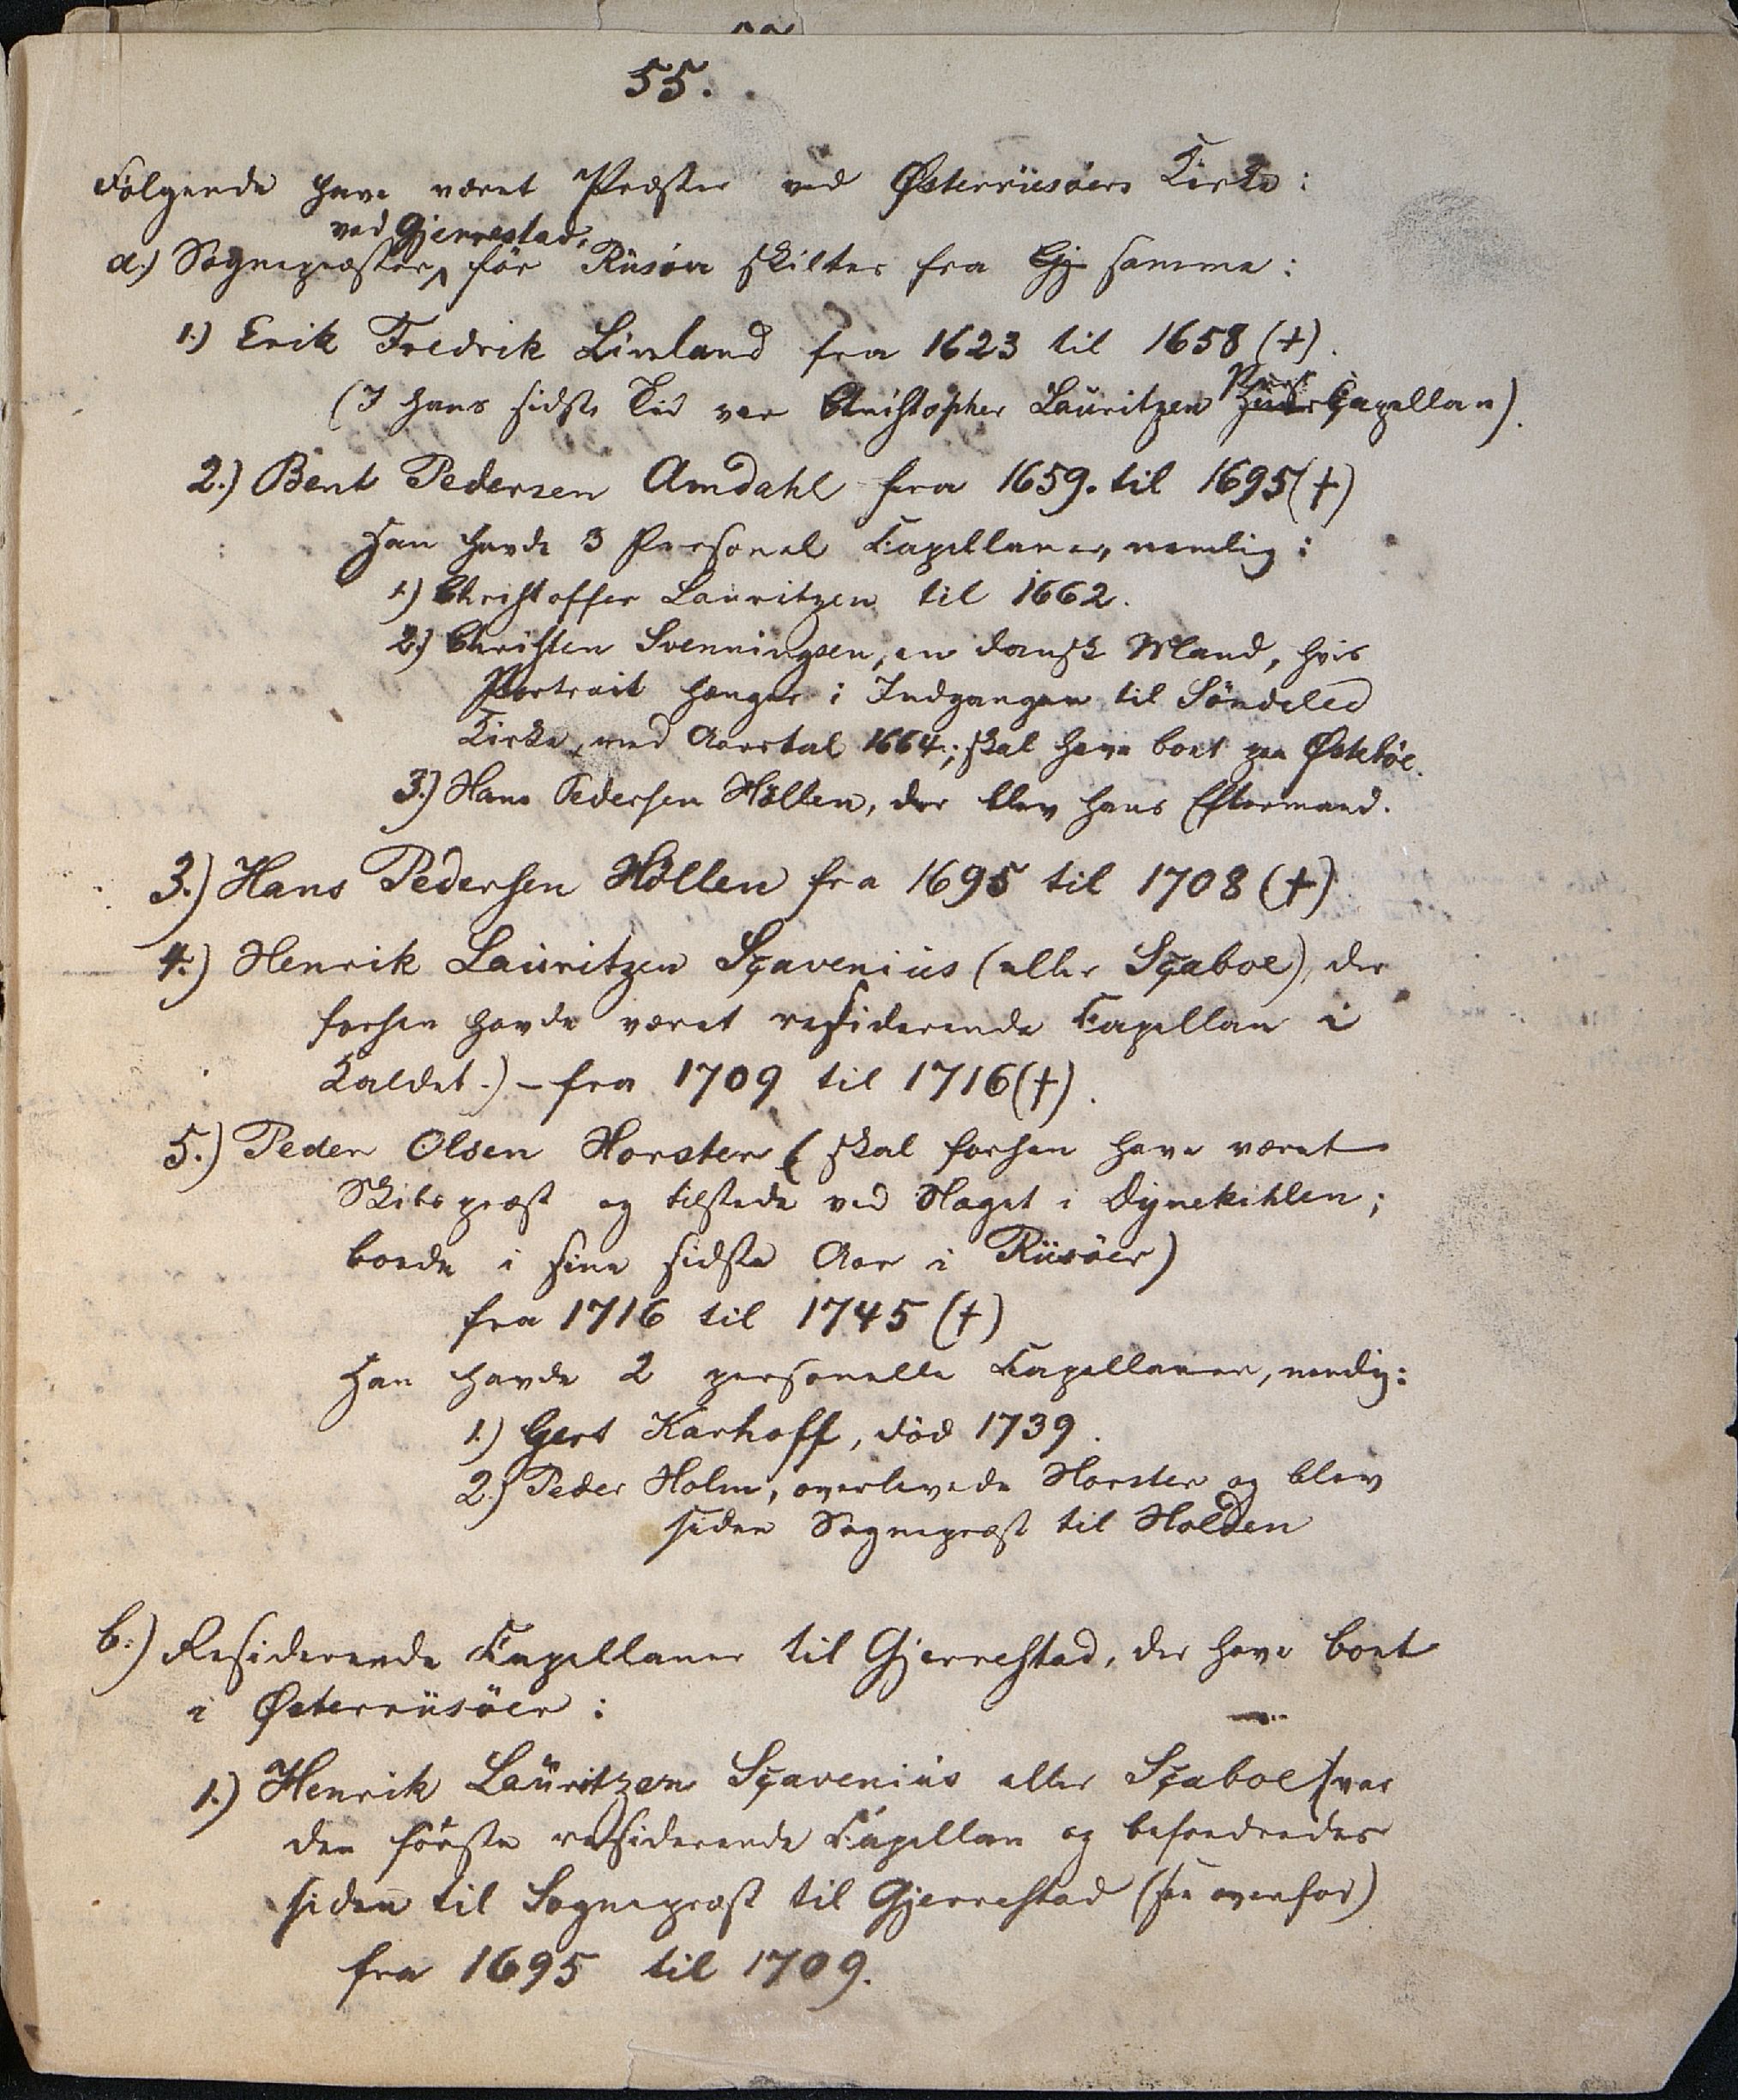 55.
Følgende have været Præster ved Østerriisøers Kirke:
ved Gjerrestad,
a.) Sognepræster, før Riisøer skiltes fra Gj samme:
1.) Erik Fredrik Linland fra 1623 til 1658 (+).
(I hans sidste Tid var Christopher Lauritzen Pers. Capellan).
2.) Bent Pedersen Amdahl fra 1659. til 1695 (+)
Han havde 3 Personel Capellaner, nemlig:
1.) Christoffer Lauritzen til 1662.
2.) Christen Svenningsen, en dansk Mand, hvis
Portrait hænger i Indgangen til Söndeled
Kirke, med Aarstal 1664.; skal have boet paa Østeböe.
3.) Hans Pedersen Höllen, der blev hans Eftermand.
3.) Hans Pedersen Höllen fra 1695 til 1708 (+)
4.) Henrik Lauritzen Scavenius (eller Scaboe), der
forhen havde været residerende Capellan i
Kaldet.) – fra 1709 til 1716 (+).
5.) Peder Olsen Horster (skal forhen have været
Skibspræst og tilstede ved Slaget i Dynekihlen;
boede i sine sidste Aar i Riisöer)
fra 1716 til 1745 (+)
Han havde 2 personelle Capellaner, nemlig:
1.) Gert Karhoff, död 1739.
2.) Peder Holm, overlevede Horster og blev
siden Sognepræst til Holden
b.) Residerende Capellaner til Gjerrestad, der have boet
i Østerriisöer:
1.) Henrik Lauritzen Scavenius eller Scaboe (var
den förste residerende Capellan og befordredes
siden til Sognepræst til Gjerrestad (see ovenfor)
fra 1695 til 1709.